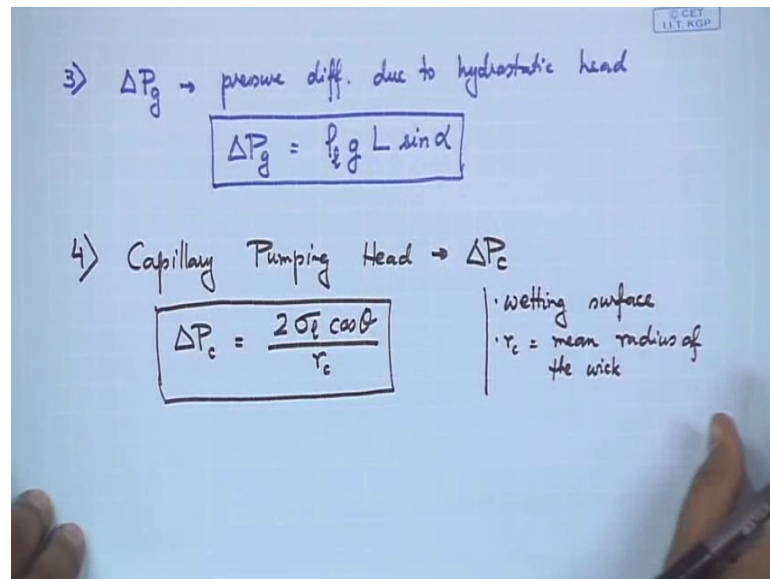 © CET
I.I.T. KGP
3) ΔPg → pressure diff. due to hydrostatic head
ΔPg = ρℓ g L sin α
4) Capillary Pumping Head → ΔPc
ΔPc = 2 σℓ cos θ / rc
· wetting surface
· rc = mean radius of
the wick